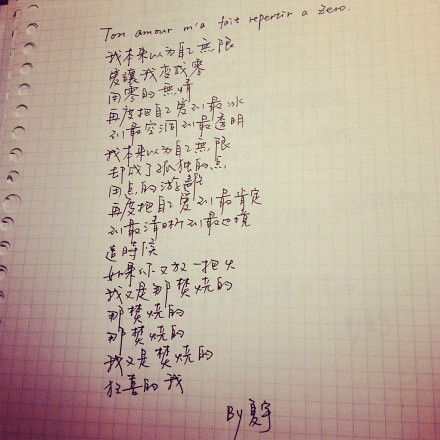 Ton amour m'a fait repertir a zero.
我本来以为自己無限
爱讓我变成零
用零的無情
再度把自己爱到最冰
到最空洞到最透明
我本来以为自己無限
却成了孤独的点
用点的游離
再度把自己爱到最肯定
到最清晰到最边境
這時候
如果你又放一把火
我又是那焚烧的
那焚烧的
那焚烧的
我又是焚烧的
狂喜的我
By 夏宇